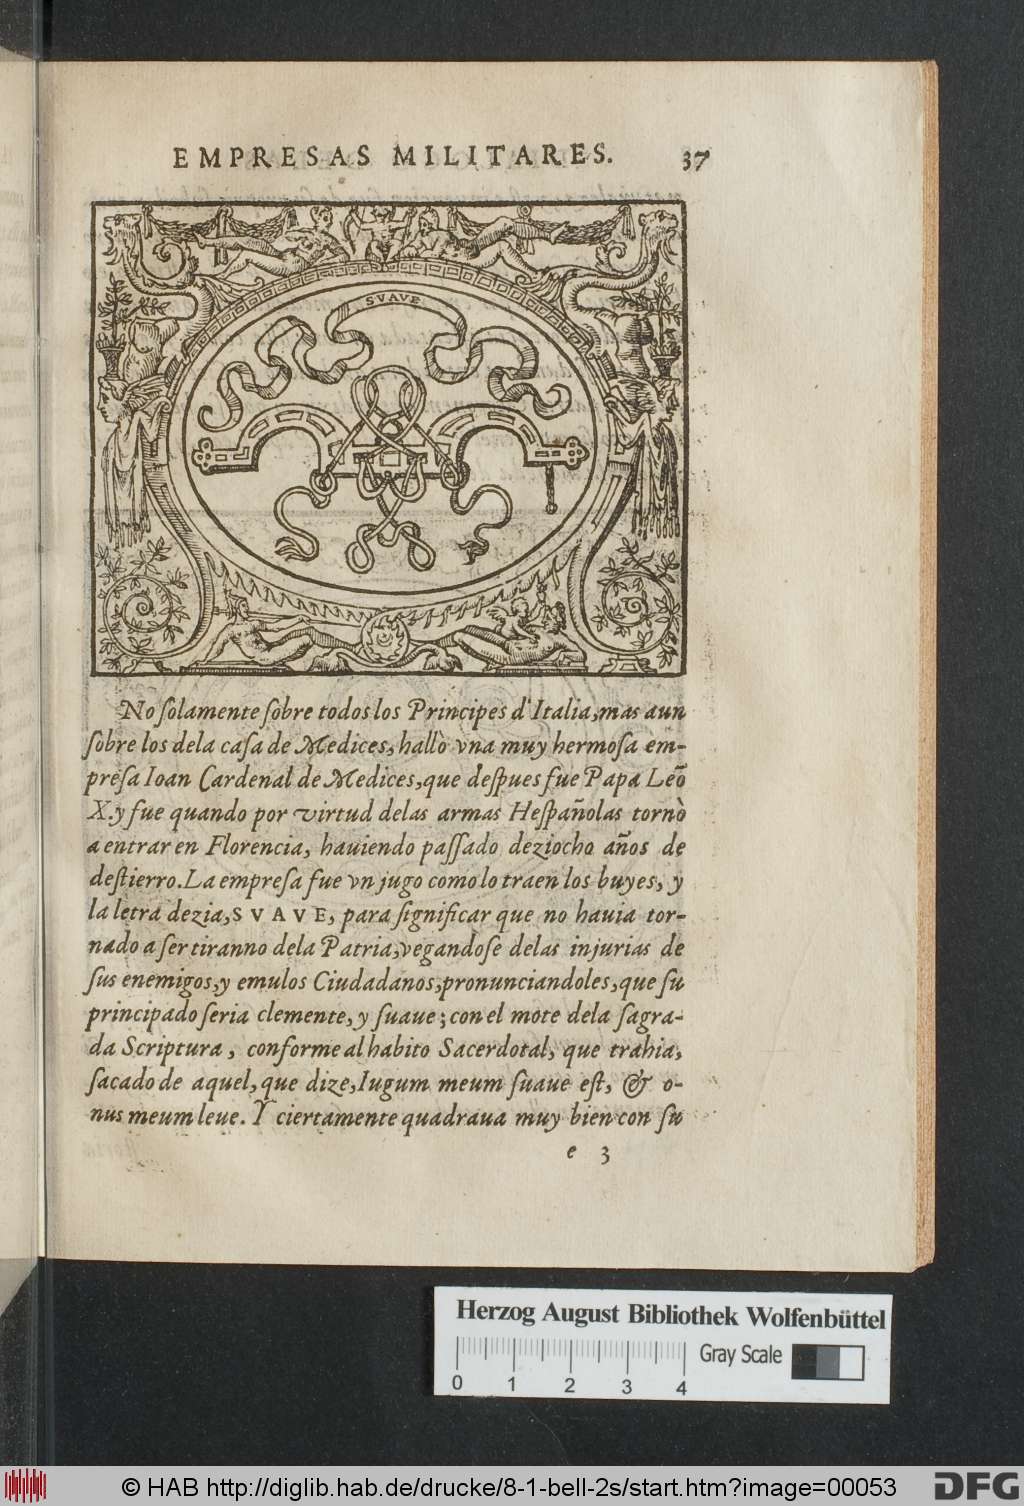 EMPRESAS MILITARES. 37
SVAVE
No solamente sobre todos los Principes d'Italia, mas aun
sobre los dela casa de Medices, hallò vna muy hermosa em-
presa Ioan Cardenal de Medices, que despues fue Papa Leō
X. y fue quando por virtud delas armas Hespañolas tornò
a entrar en Florencia, hauiendo passado deziocho años de
destierro. La empresa fue vn jugo como lo traen los buyes, y
la letra dezia, SVAVE, para significar que no hauia tor-
nado a ser tiranno dela Patria, vegandose delas injurias de
sus enemigos, y emulos Ciudadanos, pronunciandoles, que su
principado seria clemente, y suaue; con el mote dela sagra-
da Scriptura, conforme al habito Sacerdotal, que trahia,
sacado de aquel, que dize, Iugum meum suaue est, & o-
nus meum leue. Y ciertamente quadraua muy bien con su
e 3
Herzog August Bibliothek Wolfenbüttel
Gray Scale
0 1 2 3 4
© HAB http://diglib.hab.de/drucke/8-1-bell-2s/start.htm?image=00053
DFG